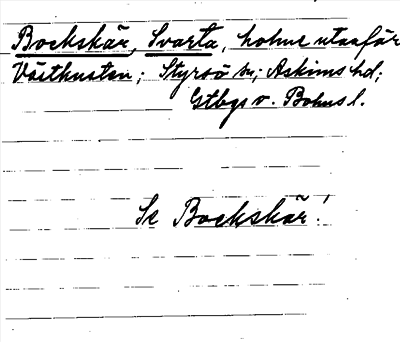 Bockskär, Svarta, holme utanför
Västkusten; Styrsö sn; Askims hd;
Gtbgs o. Bohusl.
Se Bockskär!